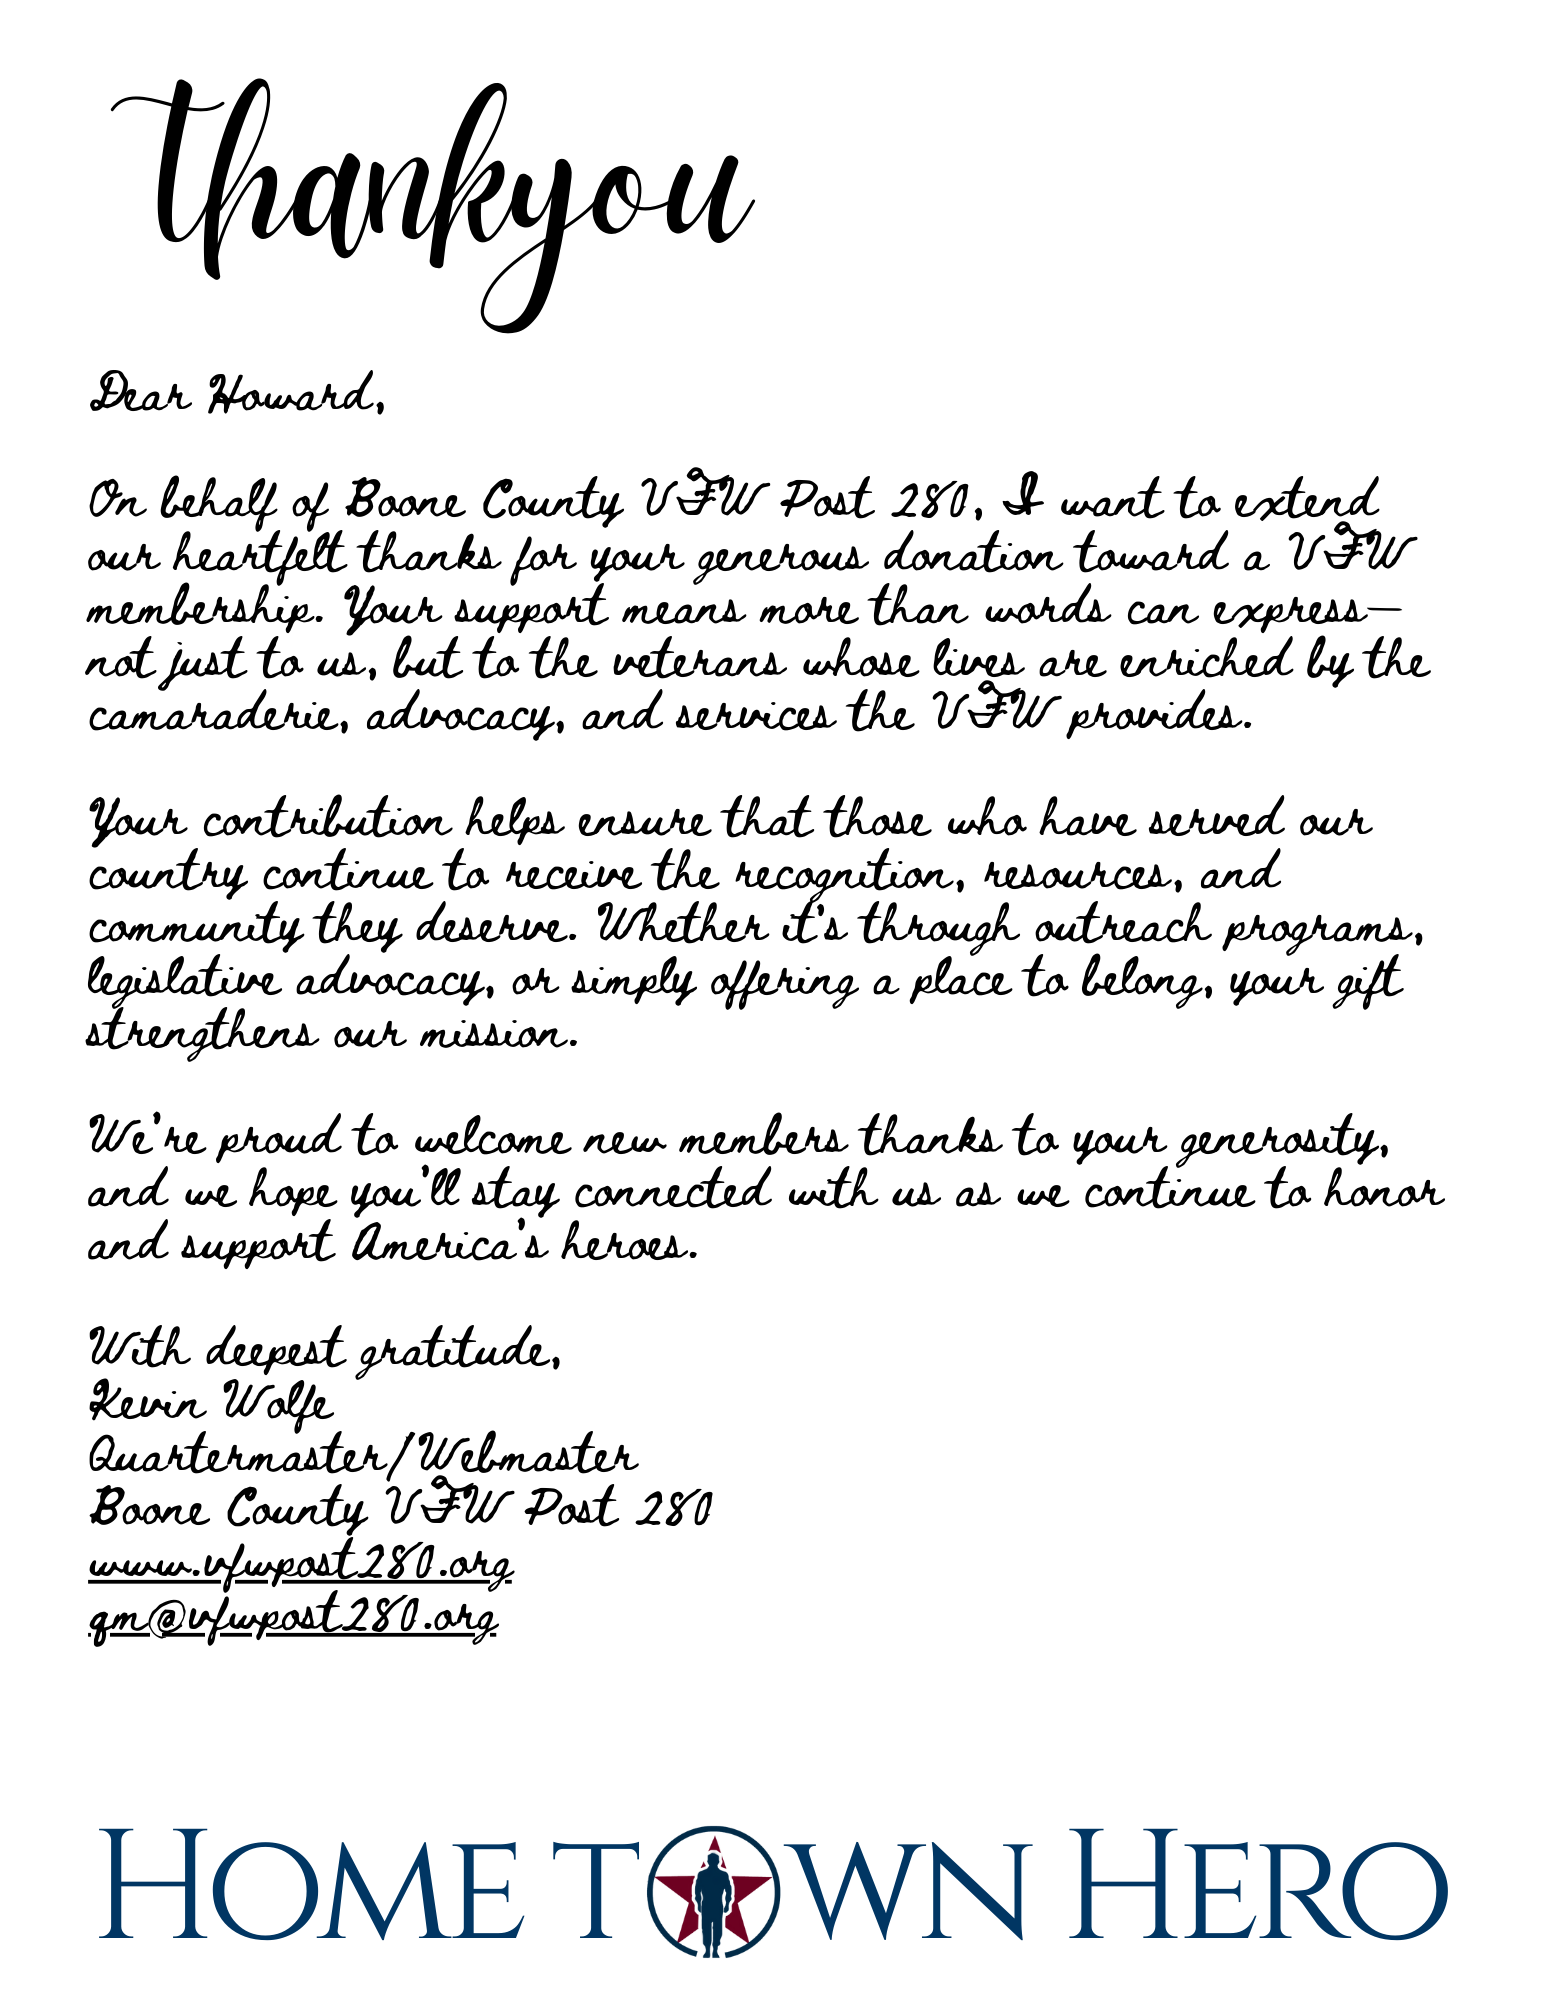 thankyou
Dear Howard,
On behalf of Boone County VFW Post 280, I want to extend
our heartfelt thanks for your generous donation toward a VFW
membership. Your support means more than words can express—
not just to us, but to the veterans whose lives are enriched by the
camaraderie, advocacy, and services the VFW provides.
Your contribution helps ensure that those who have served our
country continue to receive the recognition, resources, and
community they deserve. Whether it's through outreach programs,
legislative advocacy, or simply offering a place to belong, your gift
strengthens our mission.
We're proud to welcome new members thanks to your generosity,
and we hope you'll stay connected with us as we continue to honor
and support America's heroes.
With deepest gratitude,
Kevin Wolfe
Quartermaster/Webmaster
Boone County VFW Post 280
www.vfwpost280.org
qm@vfwpost280.org
HOME TOWN HERO